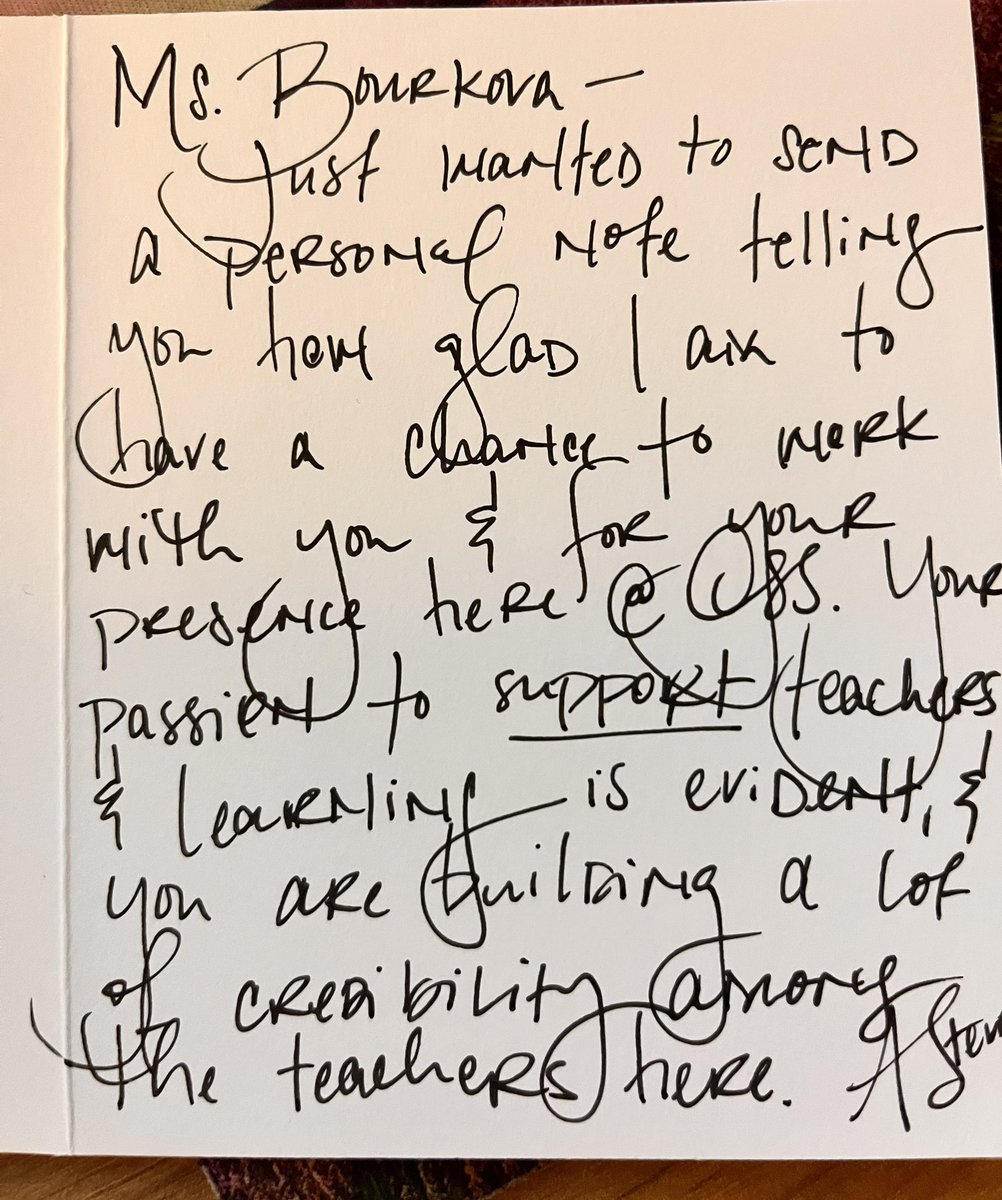 Ms. Bourkova —
Just wanted to send
a personal note telling
you how glad I am to
have a chance to work
with you & for your
presence here @ OSS. Your
passion to support teachers
& learning is evident, &
you are building a lot
of credibility among
the teachers here.